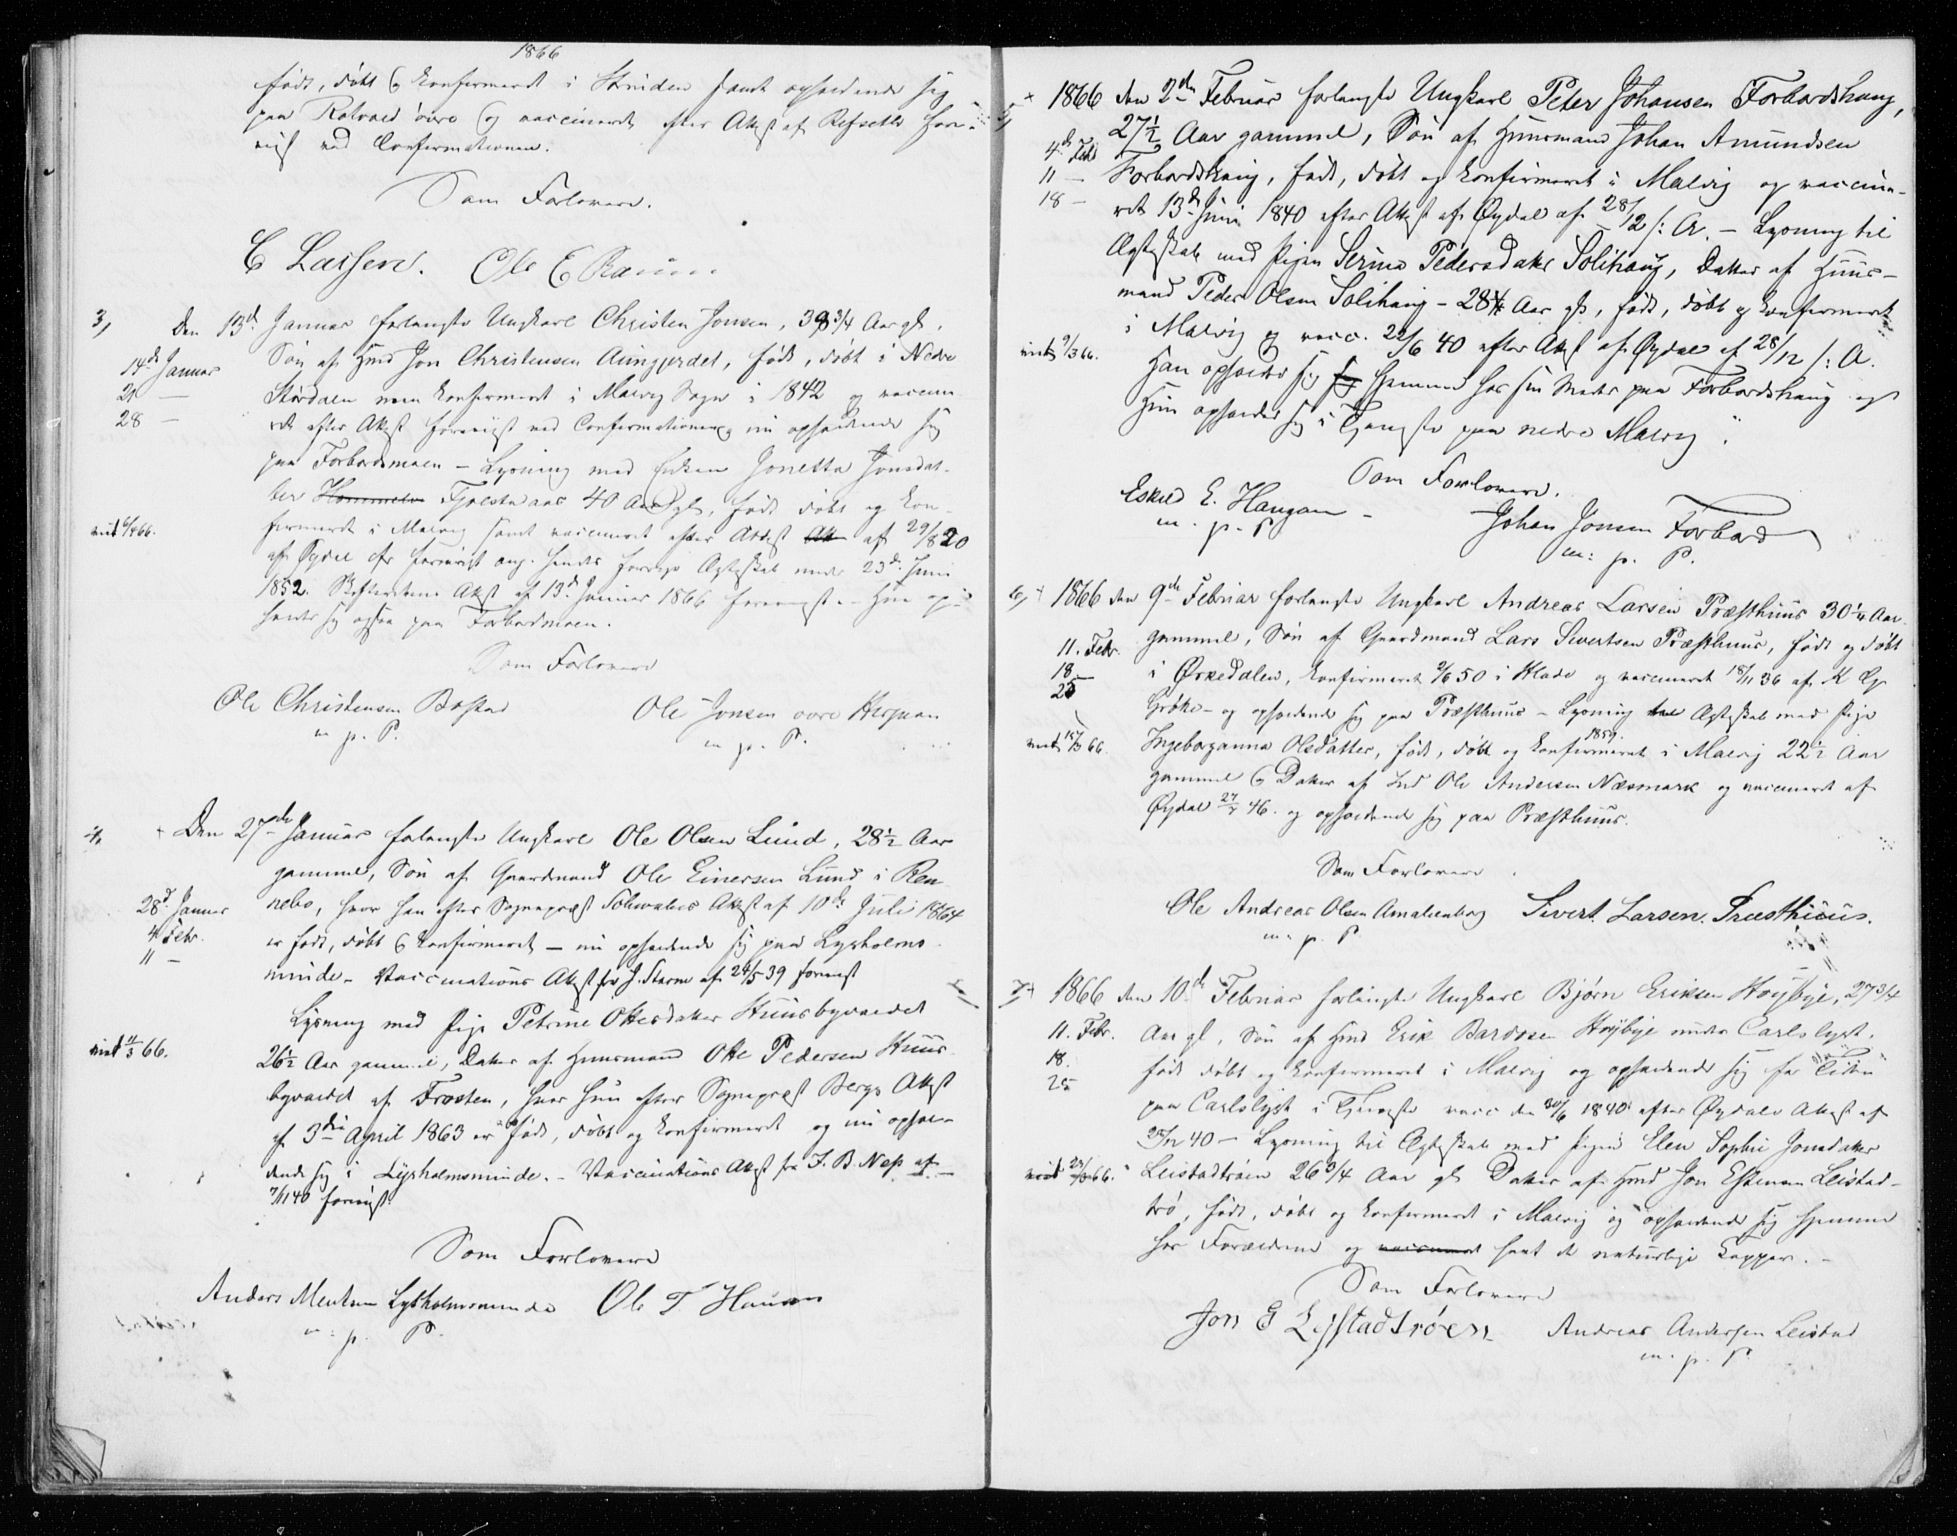 1866
født, døbt og konfirmeret i Strinden samt opholdende sig
paa Rotvold øvre og vaccineret efter Attest af Refseth fore-
vist ved Confirmationen.
Som Forlovere.
C Larsen. Ole E
3, Den 13de Januar forlangte Ungkarl Christen Jonsen, 38 3/4 Aar gl.
Søn af Hmd Jon Christensen Aungjerdet, født, døbt i Nedre
14de Januar
Størdalen men konfirmeret i Malvig Sogn i 1842 og vaccine
21 —
ret efter Attest forevist ved Confirmationen og nu opholdende sig
28 —
paa Forbordsmoen – Lysning med Enken Jonetta Jonsdat-
ter Hommelv Fjølstadaas 40 Aar gl, født døbt og kon-
firmeret i Malvig samt vaccineret efter Attest af 29/8 20
viet 6/4 66.
af Øydal er forevist ang. hendes forrige Ægteskab under 23de Juni
1852. Skifterettens Attest af 13de Januar 1866 forevist. – Hun op-
holder sig ogsaa paa Forbordsmoen.
Som Forlovere
Ole Christensen Bostad Ole Jonsen øvre
m. p. P. m. p. P.
4, + Den 27de Januar forlangte Ungkarl Ole Olsen Lund, 28 1/2 Aar
gammel, Søn af Gaardmand Ole Einersen Lund i Ren
28de Januar
nebo, hvor han efter Sognepræst Schwabes Attest af 10de Juli 1864
4 Febr.
er født, døbt og konfirmeret – nu opholdende sig paa Lysholms
11 —
minde. Vaccinations Attest fra J. Storm af 24/5 39 forevist
Lysning med Pige Petrine Ottesdatter Huusbyvaldet
viet 11/3 66.
26 1/2 Aar gammel, Datter af Huusmand Otte Pedersen Huus-
byvaldet af Frosten, hvor hun efter Sognepræst Bergs Attest
af 3die April 1863 er født, døbt og konfirmeret og nu ophol-
dende sig i Lysholmsminde. – Vaccinations Attest fra J. B. Nesp af
7/11 40 forevist.
Som Forlovere
Anders Lysholmsminde Ole T Hansen
m. p. P.
5, + 1866 den 2den Februar forlangte Ungkarl Peter Johansen Forbordshaug,
27 1/2 Aar gammel, Søn af Huusmand Johan Amundsen
4de Febr
Forbordshaug, født, døbt og konfirmeret i Malvig og vaccine-
11 —
ret 13de Juni 1840 efter Attest af Øydal af 28/12 f: A. – Lysning til
18 —
Ægteskab med Pigen Serina Pedersdatter Solihaug, Datter af Huus-
mand Peder Olsen Solihaug – 28 1/4 Aar gl, født, døbt og konfirmeret
i Malvig og vacc. 22/6 40 efter Attest af Øydal af 28/12 f: A.
viet 9/3 66.
Han opholder sig hjemme hos sin Moder paa Forbordshaug og
Hun opholder sig i Tjeneste paa nedre Malvig.
Som Forlovere.
Eskild E. Haugan – Johan Jonsen Forbord
m. p. P. m. p. P.
6, + 1866 den 9de Februar forlangte Ungkarl Andreas Larsen Præsthuus, 30 1/4 Aar
gammel, Søn af Gaardmand Lars Sivertsen Præsthuus, født og døbt
11. Febr.
i Ørkedalen, konfirmeret 9/6 50 i Klæbo og vaccineret 18/11 36 af K Ly
18 —
Grøke – og opholdende sig paa Præsthuus – Lysning til Ægteskab med Pige
25
Ingeboranna Olsdatter, født, døbt og konfirmeret 1859 i Malvig 22 1/2 Aar
viet 15/3 66.
gammel og Datter af Hmd Ole Andersen Næsmark og vaccineret af
Øydal 27/7 46. og opholdende sig paa Præsthuus.
Som Forlovere.
Ole Andreas Olsen Amalienborg Sivert Larsen Præsthuus.
m. p. P
7, + 1866 den 10de Februar forlangte Ungkarl Bjørn Eriksen Høybye, 27 3/4
11. Febr.
Aar gl, Søn af Hmd Erik Bardosen Høybye under Carlslyst.
18.
født døbt og konfirmeret i Malvig og opholdende sig for Tiden
25
paa Carlslyst i Tjeneste vacc den 30/6 1840 efter Øydals Attest af
25/12 40 – Lysning til Ægteskab med Pigen Elen Sophie Jonsdatter
viet 23/3 66.
Leistadtrøen 26 3/4 Aar gl Datter af Hmd Jon Estensen Leistad-
trø, født, døbt og konfirmeret i Malvig og opholdende sig hjemme
hos Forældrene og vaccineret havt de naturlige Kopper. –
Som Forlovere
Jon E Leistadtrøen Andreas Andersen Leistad
m. p. P